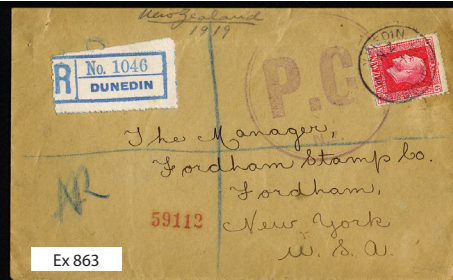 New Zealand
1919
R
No. 1046
DUNEDIN
DUNEDIN
P.C
N.Z.
The Manager,
Fordham Stamp Co.
Fordham,
New York
U. S. A.
NR
59112
Ex 863